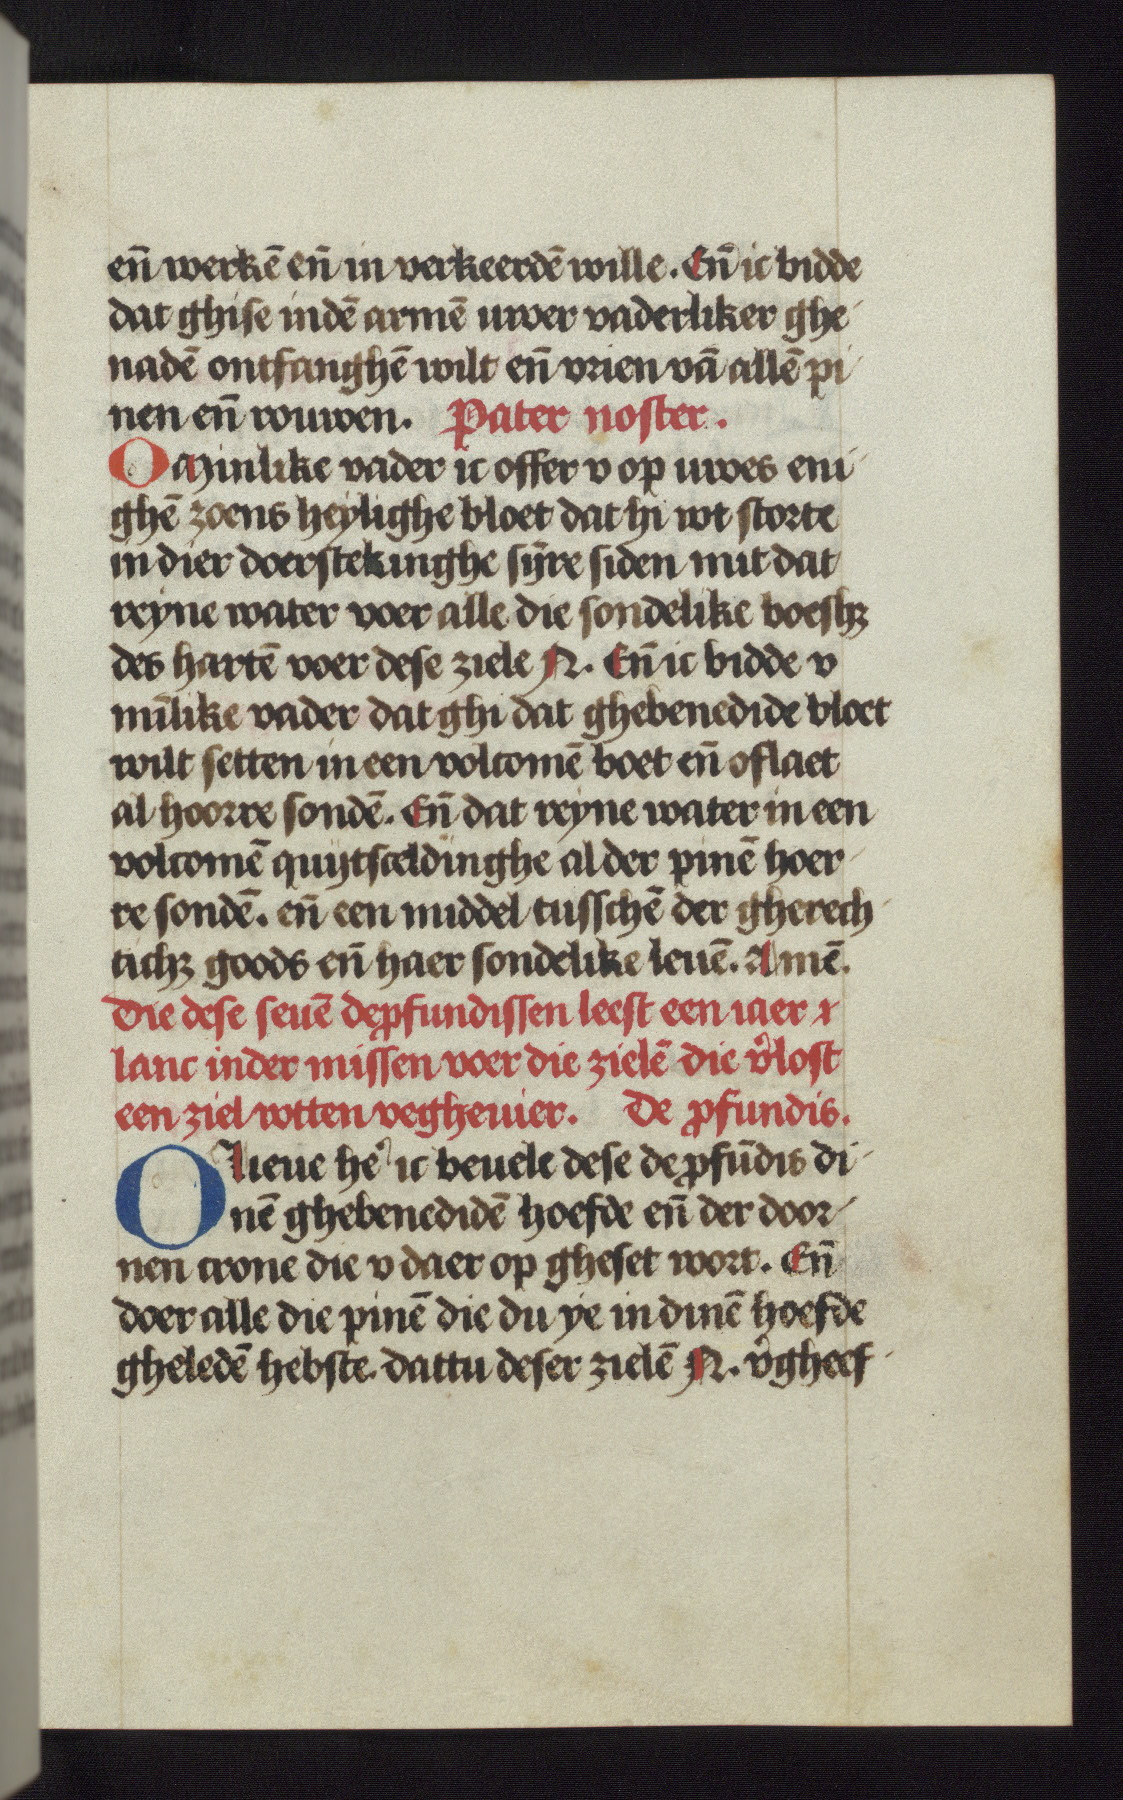 en̄ werkē en̄ in verkeerdē wille. En̄ ic bidde
dat ghise indē armē uwer vaderliker ghe-
nadē ontfanghē wilt en̄ vrien vā allē pi-
nen en̄ rouwen. Pater noster.
O Minlike vader ic offer v op uwes eni-
ghē zoens heylighe bloet dat hi wt storte
in dier doerstekinghe sijre siden mit dat
reyne water voer alle die sondelike boeshꝫ
des hartē voer dese ziele N. En̄ ic bidde v
mīlike vader dat ghi dat ghebenedide bloet
wilt setten in een volcomē boet en̄ oflaet
al hoorre sondē. En̄ dat reyne water in een
volcomē quijtsceldinghe al der pinē hoer-
re sondē. en̄ een middel tusschē der gherech-
tichꝫ goods en̄ haer sondelike leuē. Amē.
Die dese seuē deꝓfundissen leest een iaer
lanc inder missen voer die zielē die v̓lost
een ziel wtten veghevier. De ꝓfundis.
O lieue he᷑ ic beuele dese de ꝓfūdis di-
nē ghebenedidē hoefde en̄ der door-
nen crone die v daer op gheset wort. En̄
doer alle die pinē die du ye in dinē hoefde
gheledē hebste. dattu deser zielē N. v̓gheef-